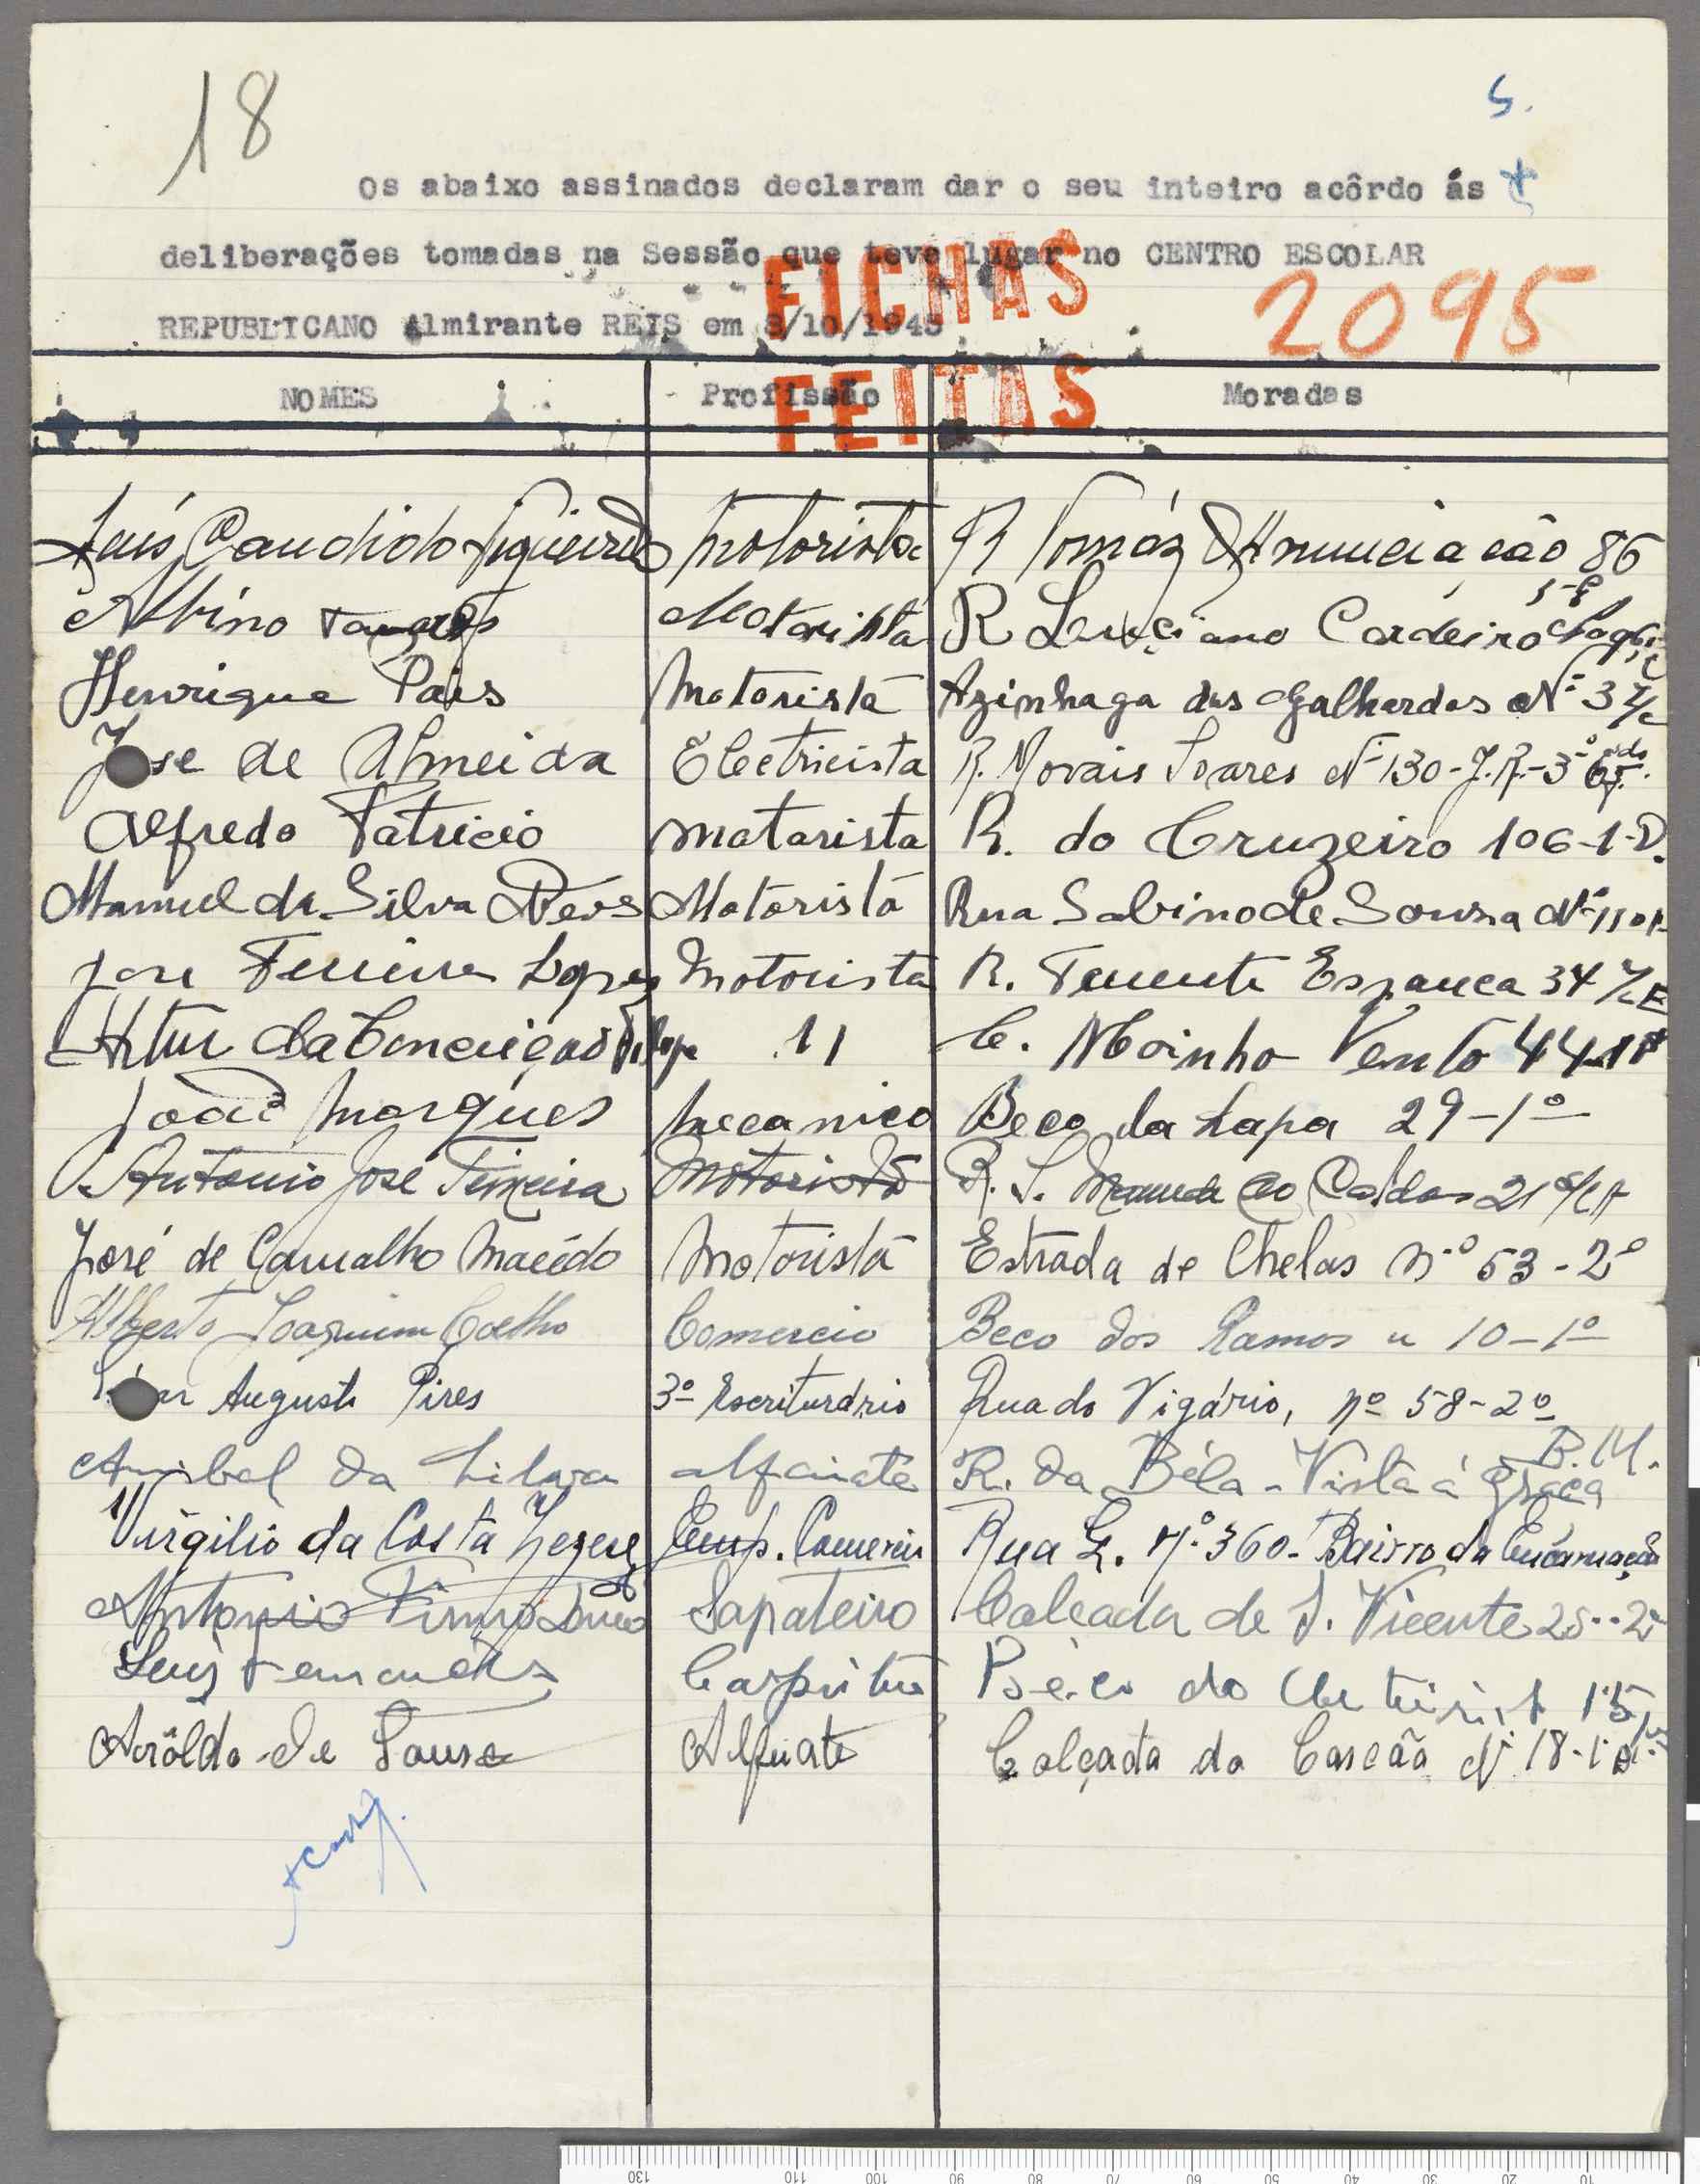 18
S.
Os abaixo assinados declaram dar o seu inteiro acôrdo ás
deliberações tomadas na Sessão que teve lugar no CENTRO ESCOLAR
REPUBLICANO Almirante REIS em 8/10/1945
FICHAS
FEITAS
2095
NOMES Profissão Moradas
Luís Candido Figueiredo Motorista R Tomáz Anunciação 86
Albino Tavares Motorista R Luciano Cordeiro
Henrique Pais Motorista Azinhaga das Galhardas Nº 3 r/c
José de Almeida Electricista R. Morais Soares Nº 130-J.R.-3º
Alfredo Patricio Motorista R. do Cruzeiro 106-1-D.
Manuel da Silva Neves Motorista Rua Sabino de Sousa Nº
José Ferreira Lopes Motorista R. Tenente Espanca 34 r/c E
Artur da Conceição 11 C. Moinho Vento 44
João Marques Mecanico Beco da Lapa 29-1º
Antonio José Teixeira Motorista R. S. ao Caldas 21
José de Carvalho Macêdo Motorista Estrada de Chelas nº 53-2º
Alberto Joaquim Coelho Comercio Beco dos Ramos n 10-1º
Augusto Pires 3º Escriturário Rua do Vigário, nº 58-2º
B.M.
Anibal da Silva alfaiate R. da Béla-Vista á Graça
Virgilio da Costa Zezere Emp. Comercio Rua L. Nº 360-Bairro da Encarnação
Antonio Sapateiro Calçada de S. Vicente 25--2º
Luiz Fernandes Carpinteiro Béco do 15
Aroldo de Sousa Alfaiate Calçada do Cascão Nº 18-1º